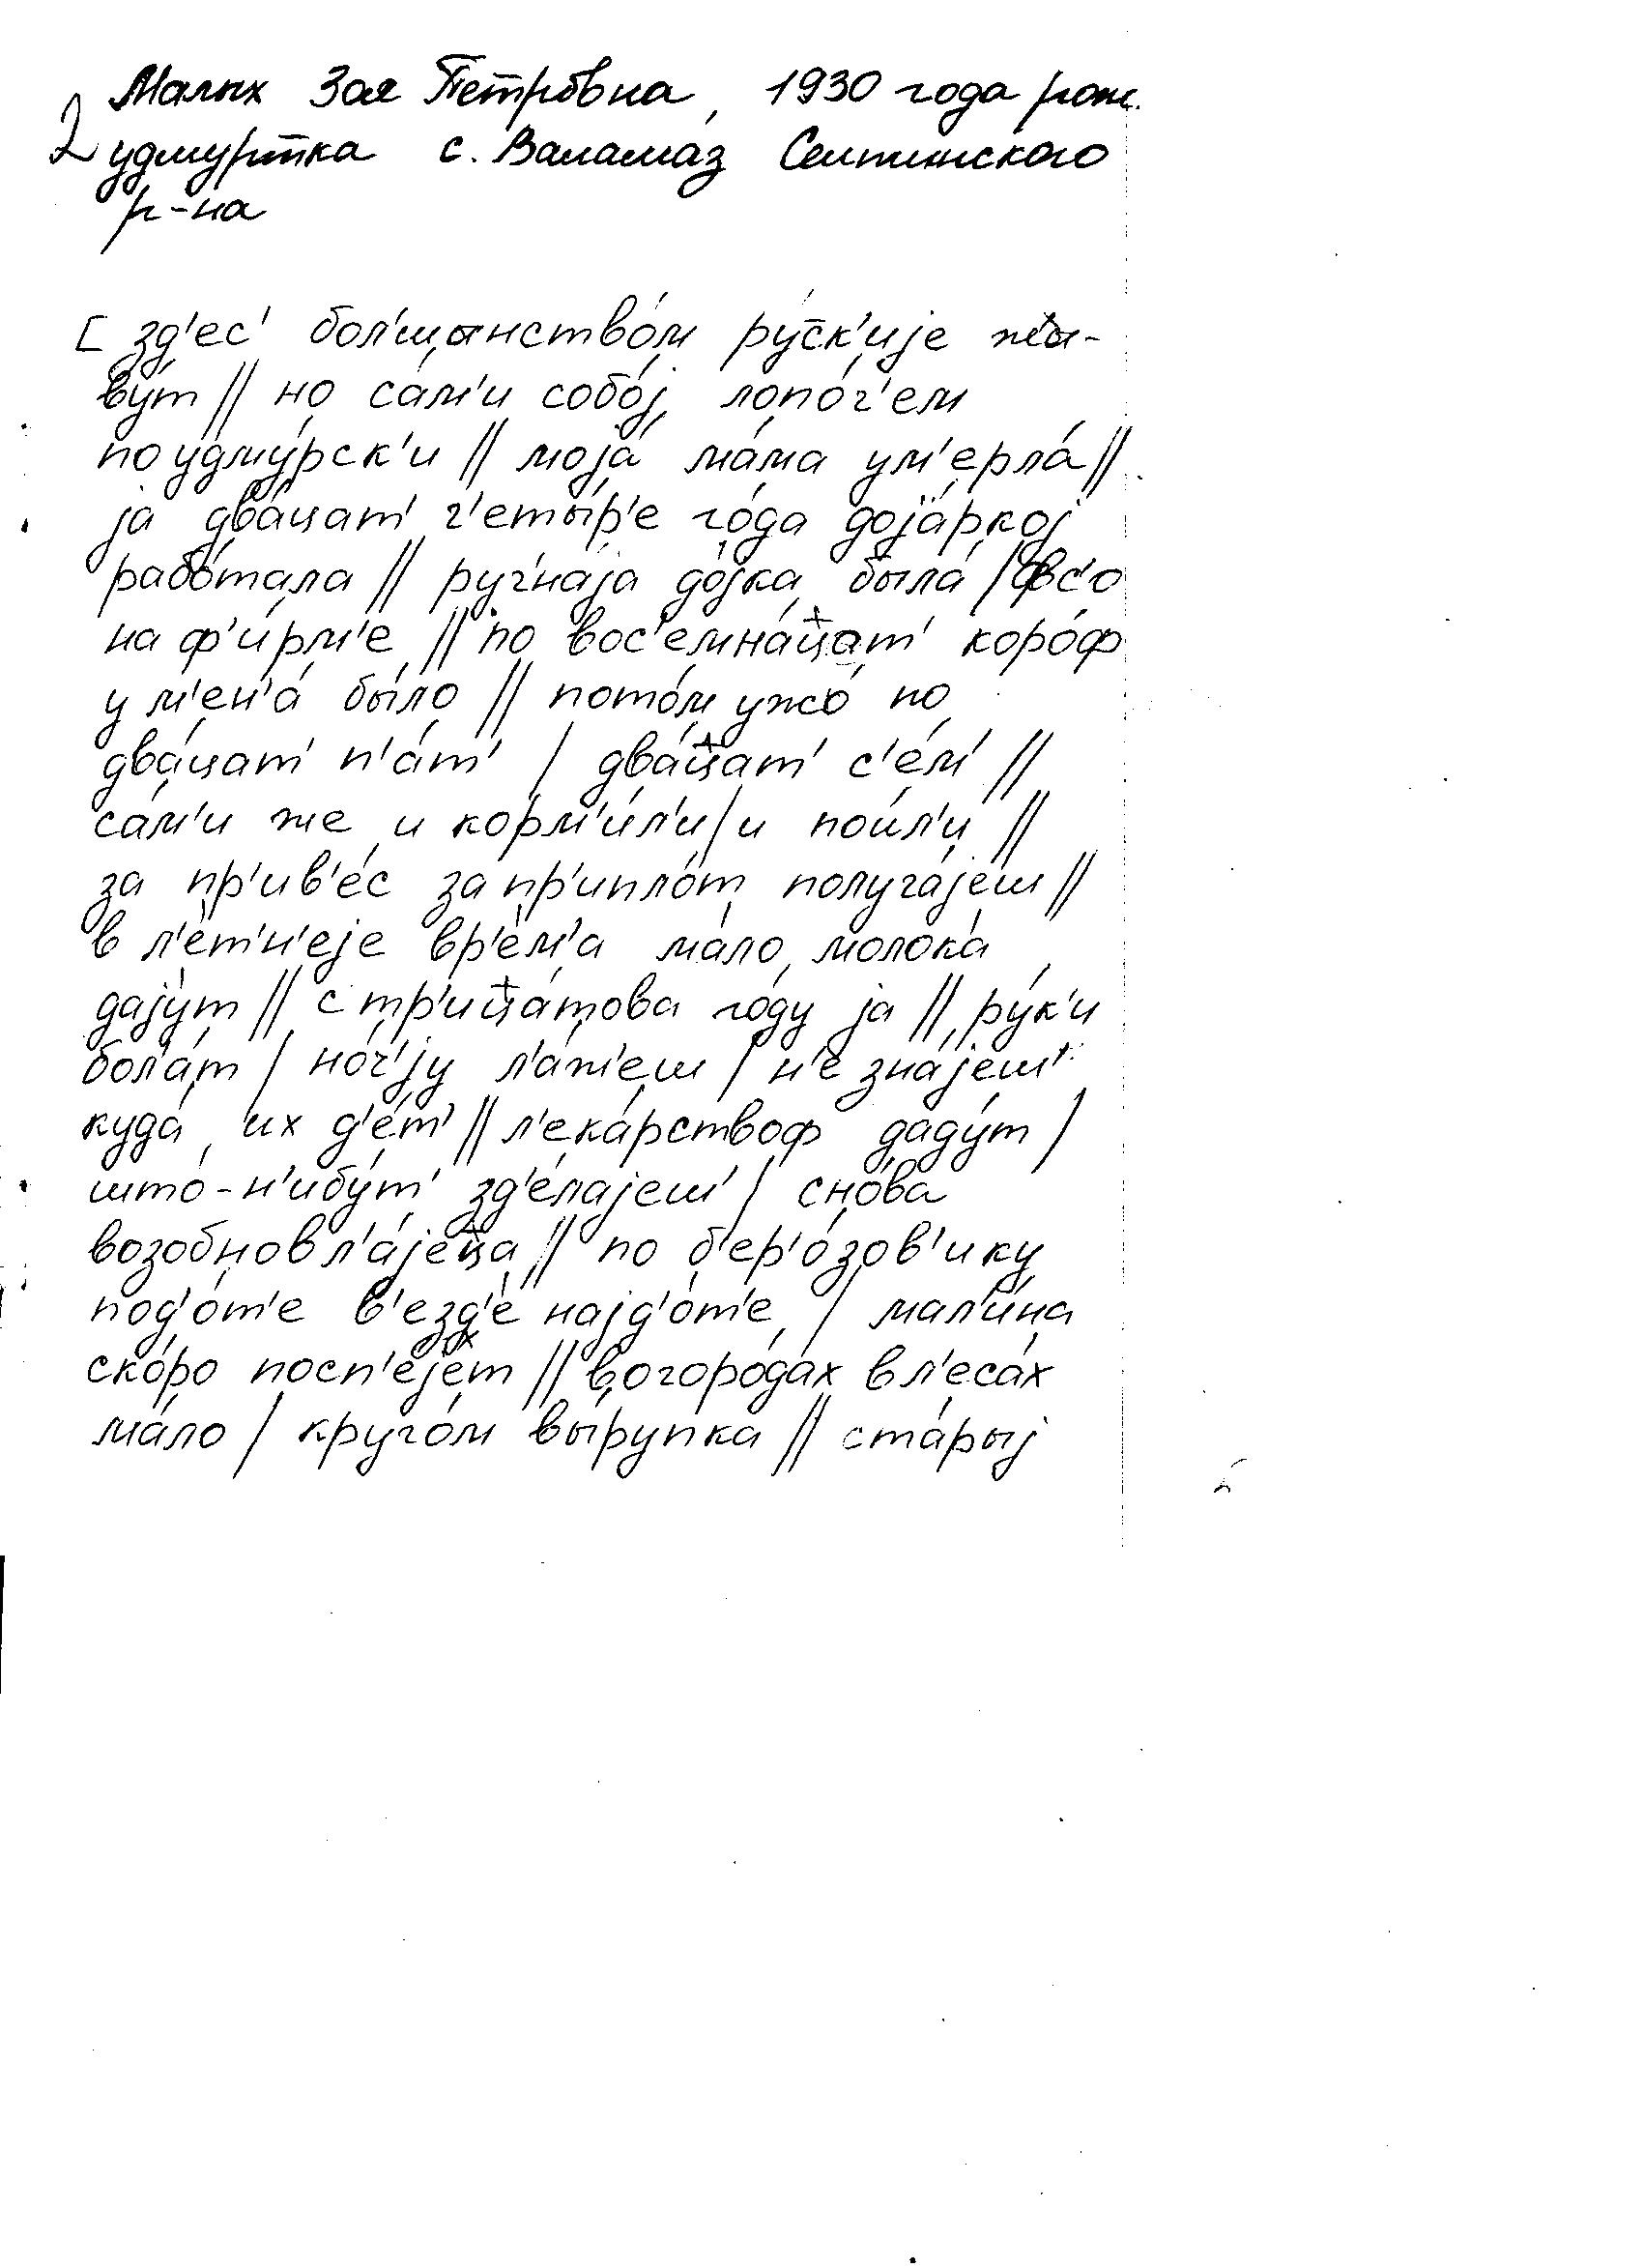 Малых Зоя Петровна, 1930 года рож.
2 удмуртка с. Валамаз Селтинского
р-на
[ зд'ес' бол'шынство́м ру́с̄к'ијε жы-
ву́т // но са́м'и собо́ј лопо́ч'ем
по удму́рск'и // моја́ ма́ма ум'ерла́ //
ја два́цат' ч'еты́р'е го́да доја́ркој
рабо́тала // ручна́ја до́јка была́ / фс'о
на ф'и́рм'е // по вос'емна́ц̄ат' коро́ф
у м'ен'а́ бы́ло // пото́м ужо́ по
два́цат' п'а́т' / два́ц̄ат' с'е́м' //
са́м'и же и корм'и́л'и / и пои́л'и //
за пр'ив'е́с за пр'ипло́т получа́јеш //
в л'е́т'н'ејε вр'е́м'а ма́ло молока́
даjу́т // с тр'иц̄а́това го́ду ја // ру́к'и
бол'а́т / но́ч'ју л'а́ж'еш / н'е зна́јеш
куда́ их д'е́т' // л'ека́рствоф даду́т /
што́-н'ибу́т' зд'е́лајеш' / сно́ва
возобновл'а́јец̄а // по б'ер'о́зов'ику
под'о́т'е в'езд'е́ најд'о́т'е / мал'и́на
ско́ро посп'е́јет // в огоро́дах в л'еса́х
ма́ло / круго́м вы́рупка // ста́рыј